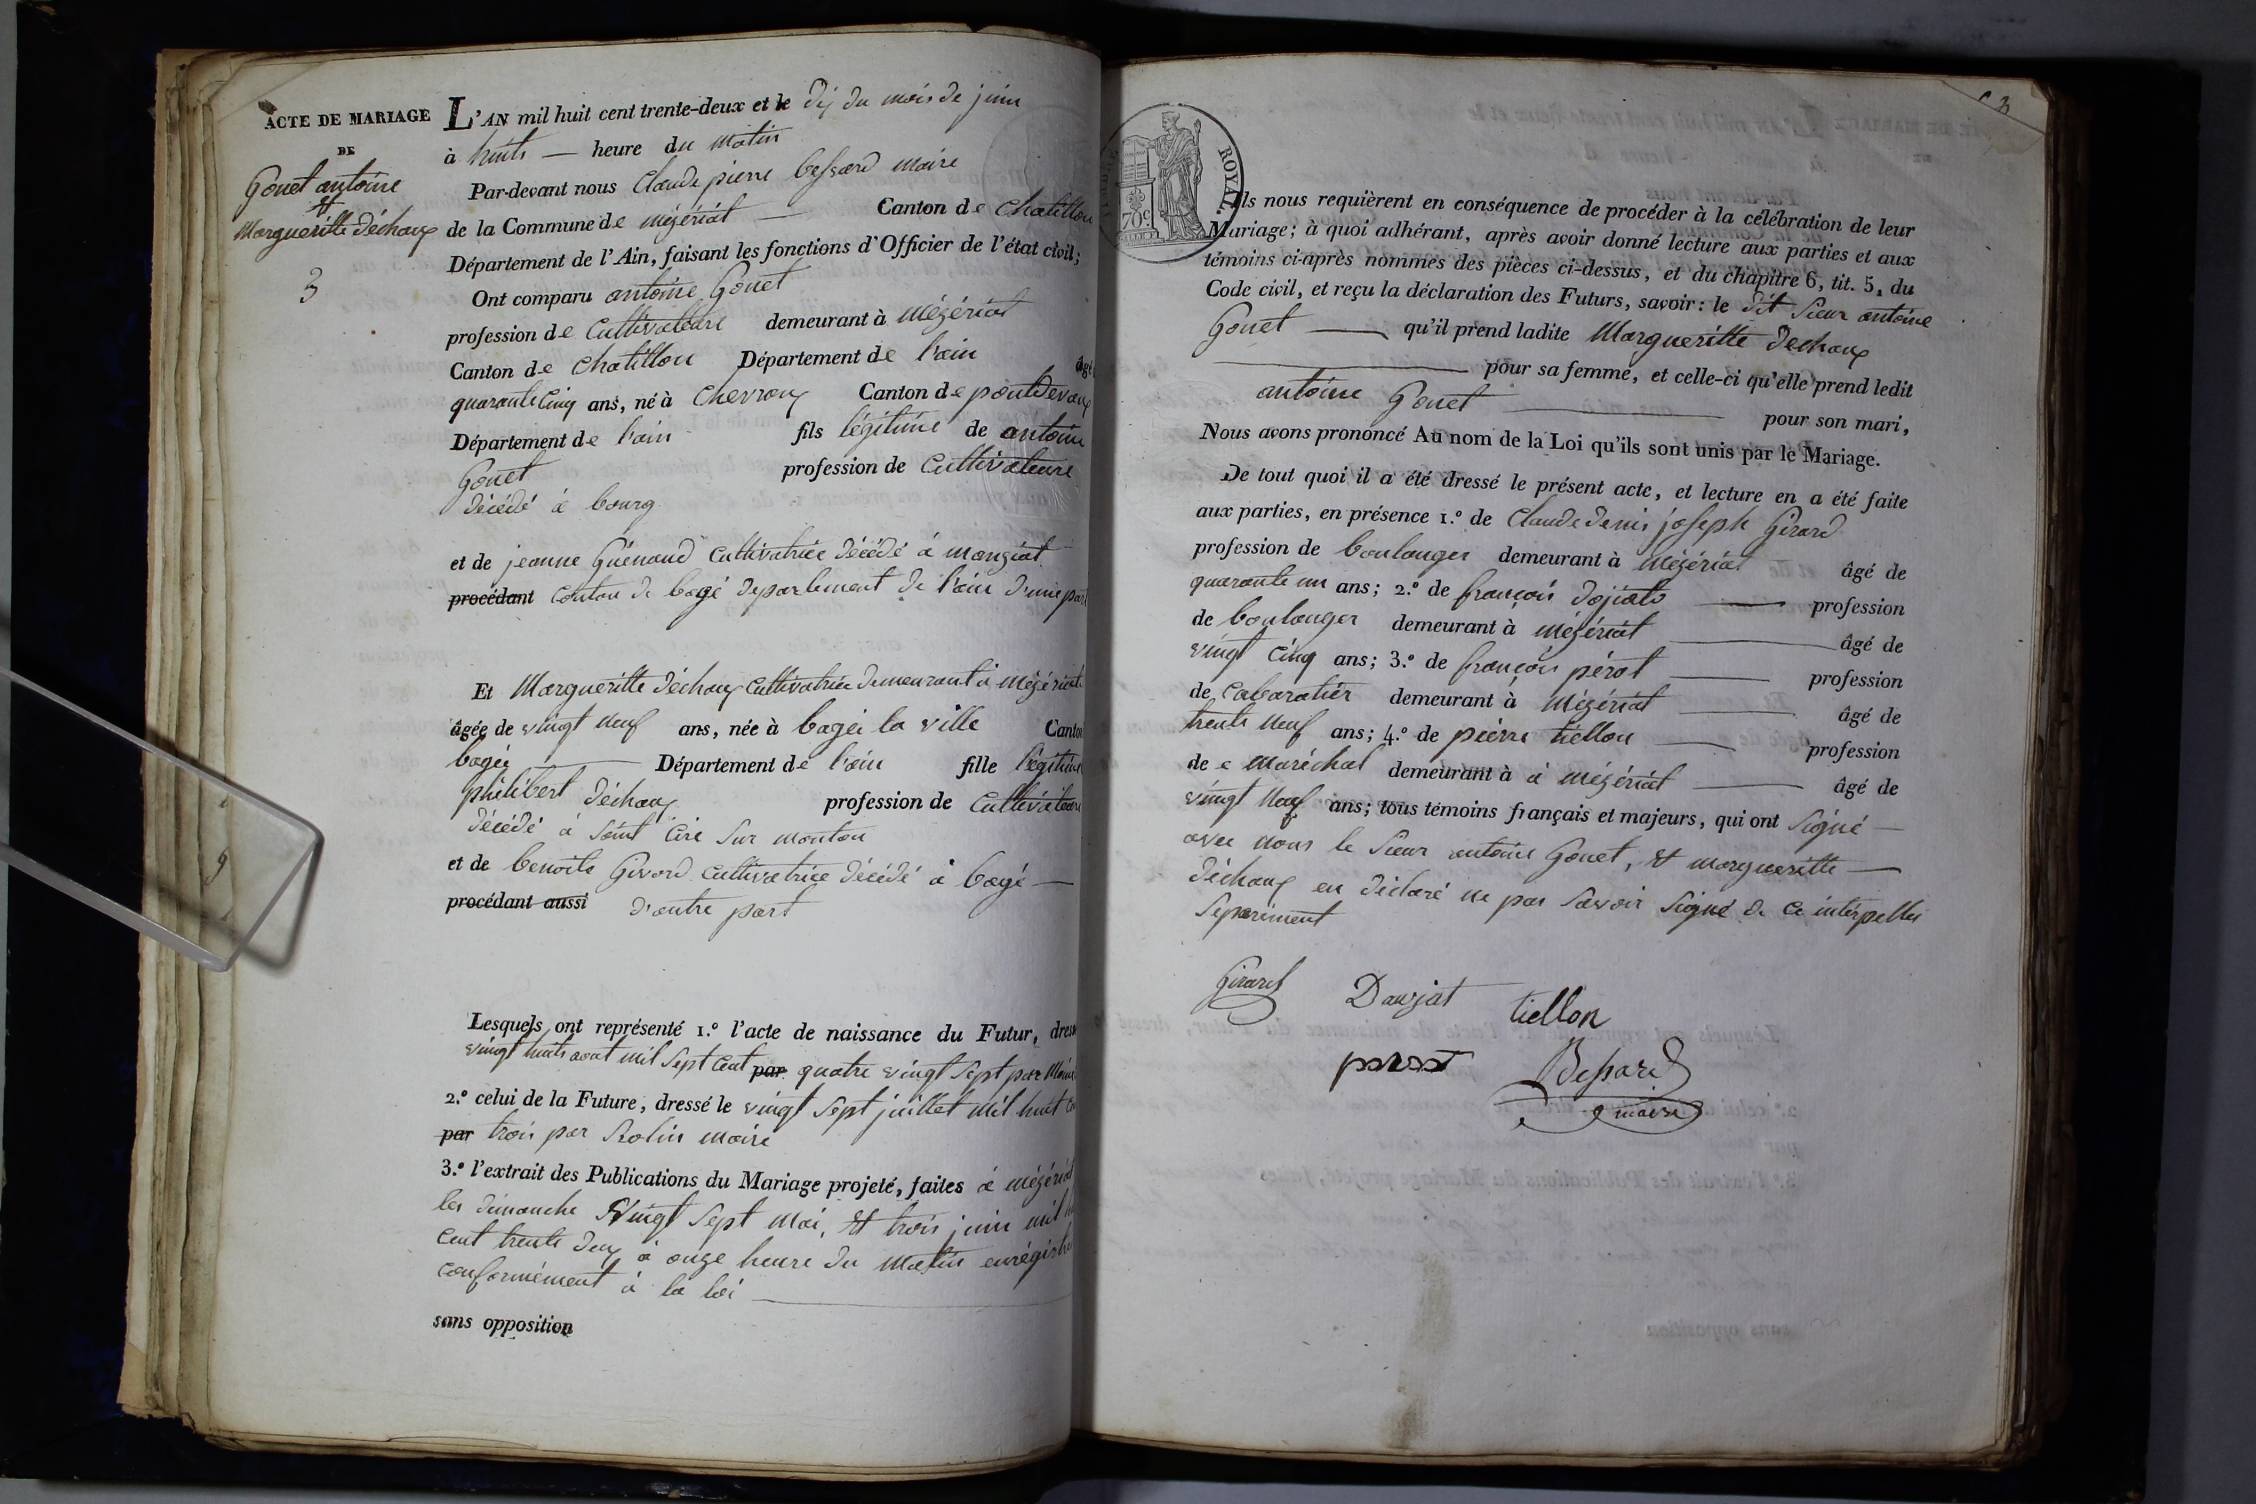 ACTE DE MARIAGE
DE
Gonet antoine
et
Margueritte déchaux
3
L'AN mil huit cent trente-deux et le dix du mois de juin
à huits — heure du matin
Par-devant nous Claude pierre bessard maire
de la Commune de mézériat — Canton de chatillon
Département de l'Ain, faisant les fonctions d'Officier de l'état civil;
Ont comparu antoine Gonet
profession de Cultivateure demeurant à mézériat
Canton de chatillon Département de l'ain âgé
quarante Cinq ans, né à Chevroux Canton de pontdevaux
Département de l'ain fils légitime de antoine
Gonet profession de Cultivateure
décédé à bourg
et de jeanne Guénaud Cultivatrice décédé à manziat
procédant Conton de bagé departement de l'ain d'une part
Et Margueritte déchaux Cultivatrice demeurant à mézériat
âgée de vingt neuf ans, née à bagéi la ville Canton
bagéi — Département de l'ain fille légitime
philibert déchaux profession de Cultivateure
décédé à saint Cire sur monton
et de benoite Givord Cultivatrice décédé à bagé —
procédant aussi d'autre part
Lesquels ont représenté 1.º l'acte de naissance du Futur, dressé
vingt huits aout mil sept cent par quatre vingt sept par
2.º celui de la Future, dressé le vingt sept juillet mil huit
par trois par Rolin maire
3.º l'extrait des Publications du Mariage projeté, faites à mézériat
les dimanche vingt sept mai, et trois juin mil
cent trente deux à onze heure du matin enrégistré
conformément à la loi —
sans opposition
ROYAL.
70 c.
Ils nous requièrent en conséquence de procéder à la célébration de leur
Mariage; à quoi adhérant, après avoir donné lecture aux parties et aux
témoins ci-après nommés des pièces ci-dessus, et du chapitre 6, tit. 5, du
Code civil, et reçu la déclaration des Futurs, savoir: le dit sieur antoine
Gonet — qu'il prend ladite Margueritte dechaux
— pour sa femme, et celle-ci qu'elle prend ledit
antoine Gonet — pour son mari,
Nous avons prononcé Au nom de la Loi qu'ils sont unis par le Mariage.
De tout quoi il a été dressé le présent acte, et lecture en a été faite
aux parties, en présence 1.º de Claude denis joseph Girard
profession de boulanger demeurant à mézériat âgé de
quarante un ans; 2.º de françois dojats — profession
de boulanger demeurant à mézériat — âgé de
vingt cinq ans; 3.º de françois pérot — profession
de cabaratiér demeurant à mézériat — âgé de
trente neuf ans; 4.º de piérre tiéllon — profession
de e maréchal demeurant à à mézériat — âgé de
vingt neuf ans; tous témoins français et majeurs, qui ont signé —
avec nous le sieur antoine Gonet, et margueritte —
déchaux en déclaré ne pas savoir signé de ce intérpellés
séparément
Girard Daujat tiellon
perot Bessard
maire